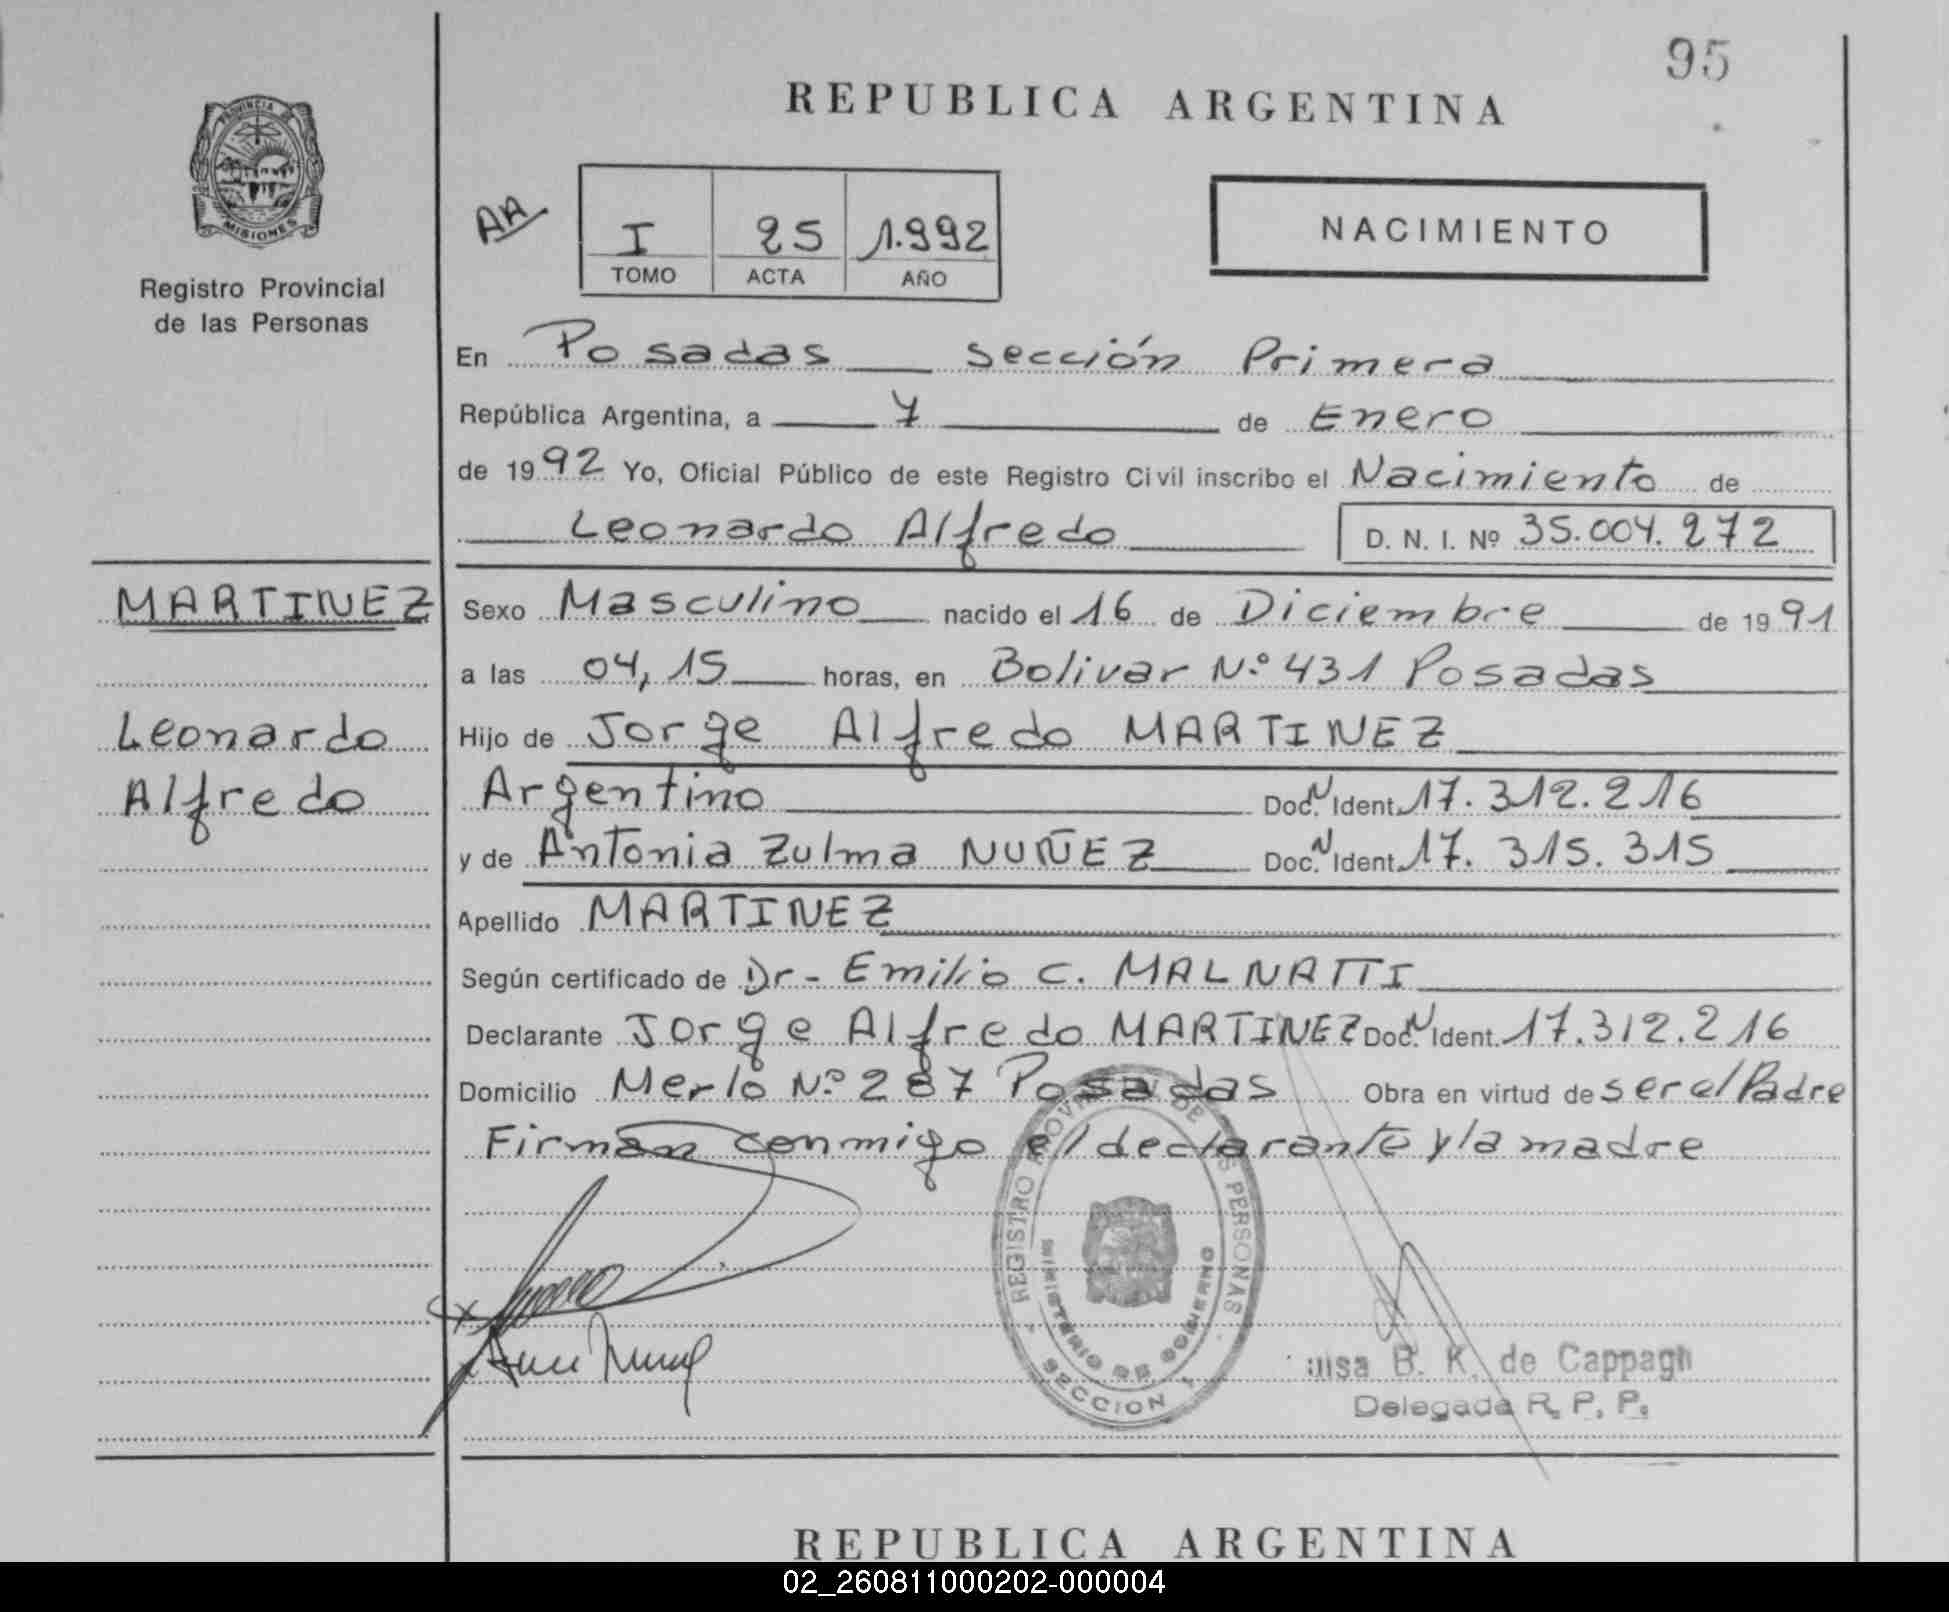 95
REPUBLICA ARGENTINA
PROVINCIA DE
MISIONES
Registro Provincial
de las Personas
AA
I 25 1.992
TOMO ACTA AÑO
NACIMIENTO
En Posadas sección Primera
República Argentina, a 7 de Enero
de 1992 Yo, Oficial Público de este Registro Civil inscribo el Nacimiento de
Leonardo Alfredo D. N. I. Nº 35.004.272
MARTINEZ
Leonardo
Alfredo
Sexo Masculino nacido el 16 de Diciembre de 1991
a las 04,15 horas, en Bolivar Nº 431 Posadas
Hijo de Jorge Alfredo MARTINEZ
Argentino Doc. N Ident. 17.312.216
y de Antonia Zulma NUÑEZ Doc. N Ident. 17.315.315
Apellido MARTINEZ
Según certificado de Dr- Emilio C. MALNATTI
Declarante Jorge Alfredo MARTINEZ Doc. N Ident. 17.312.216
Domicilio Merlo Nº 287 Posadas Obra en virtud de ser el Padre
Firman conmigo el declarante y la madre
REGISTRO PROVINCIAL DE LAS PERSONAS
MINISTERIO DE GOBIERNO
SECCION 1
B. K. de Cappagli
Delegada R. P. P.
REPUBLICA ARGENTINA
02_260811000202-000004